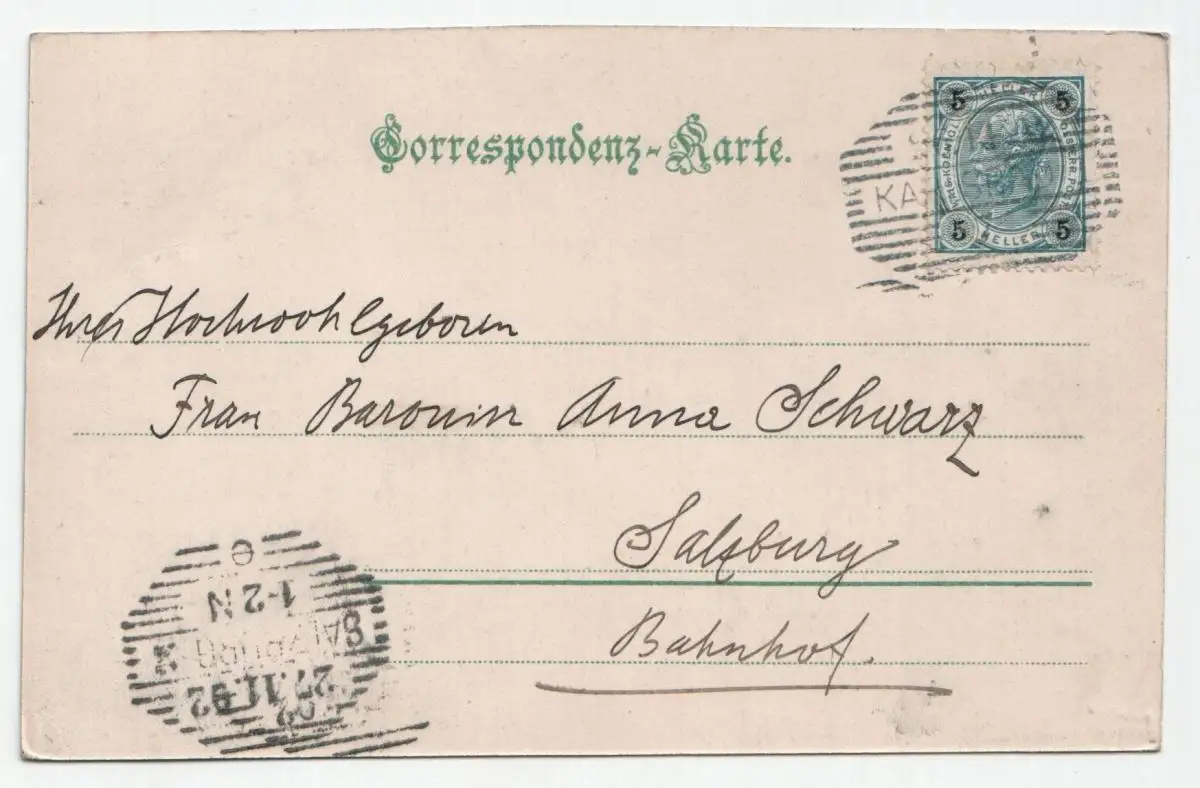 Correspondenz-Karte.
5 5
5 HELLER 5
KA
Ihrer Hochwohlgeboren
Frau Baronin Anna Schwarz
Salzburg
Bahnhof.
SALZBURG
1-2 N
27.11.92